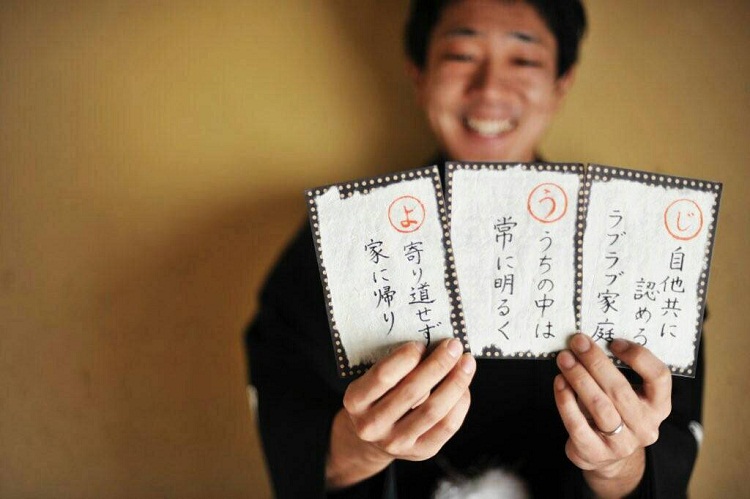 よ
寄り道せず
家に帰り
う
うちの中は
常に明るく
じ
自他共に
認める
ラブラブ家庭